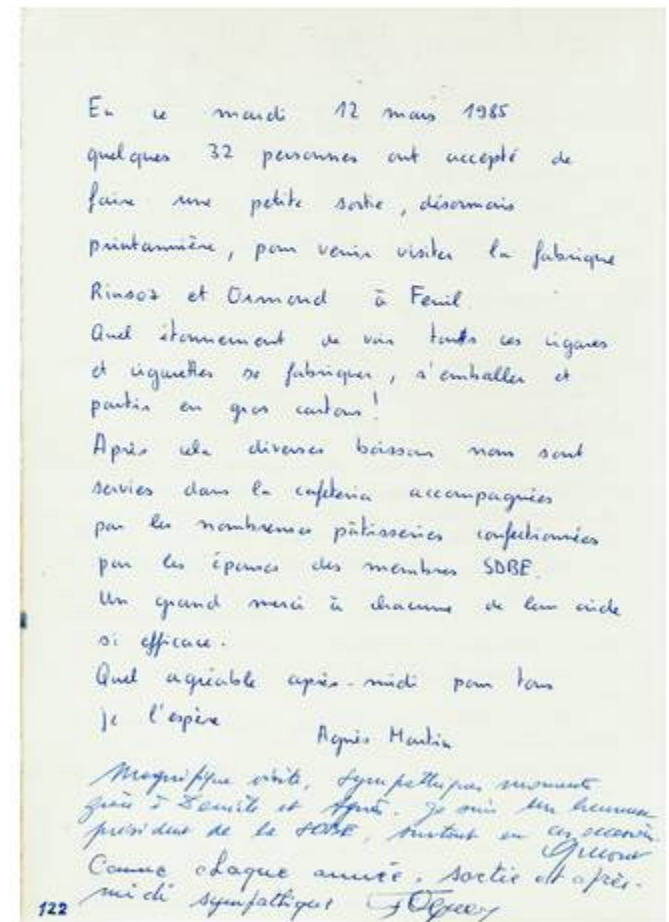 En ce mardi 12 mars 1985
quelques 32 personnes ont accepté de
faire une petite sortie, désormais
printannière, pour venir visiter la fabrique
Rinsoz et Ormond à Feuil.
Quel étonnement de voir touts ces cigares
et cigarettes se fabriquer, s'emballer et
partir en gros cartons!
Après cela diverses boisson nous sont
servies dans la cafeteria accompagnées
par les nombreuses pâtisseries confectionnées
par les épouses des membres SDBE.
Un grand merci à chacune de leur aide
si efficace.
Quel agréable après-midi pour tous
je l'espère
Agnès Martin
Magnifique visite, sympathiques moments
grâce à et Agnès. Je suis un heureux
président de la SDBE, surtout en ces occasions
Comme chaque année, sortie et après-
midi sympathique
122